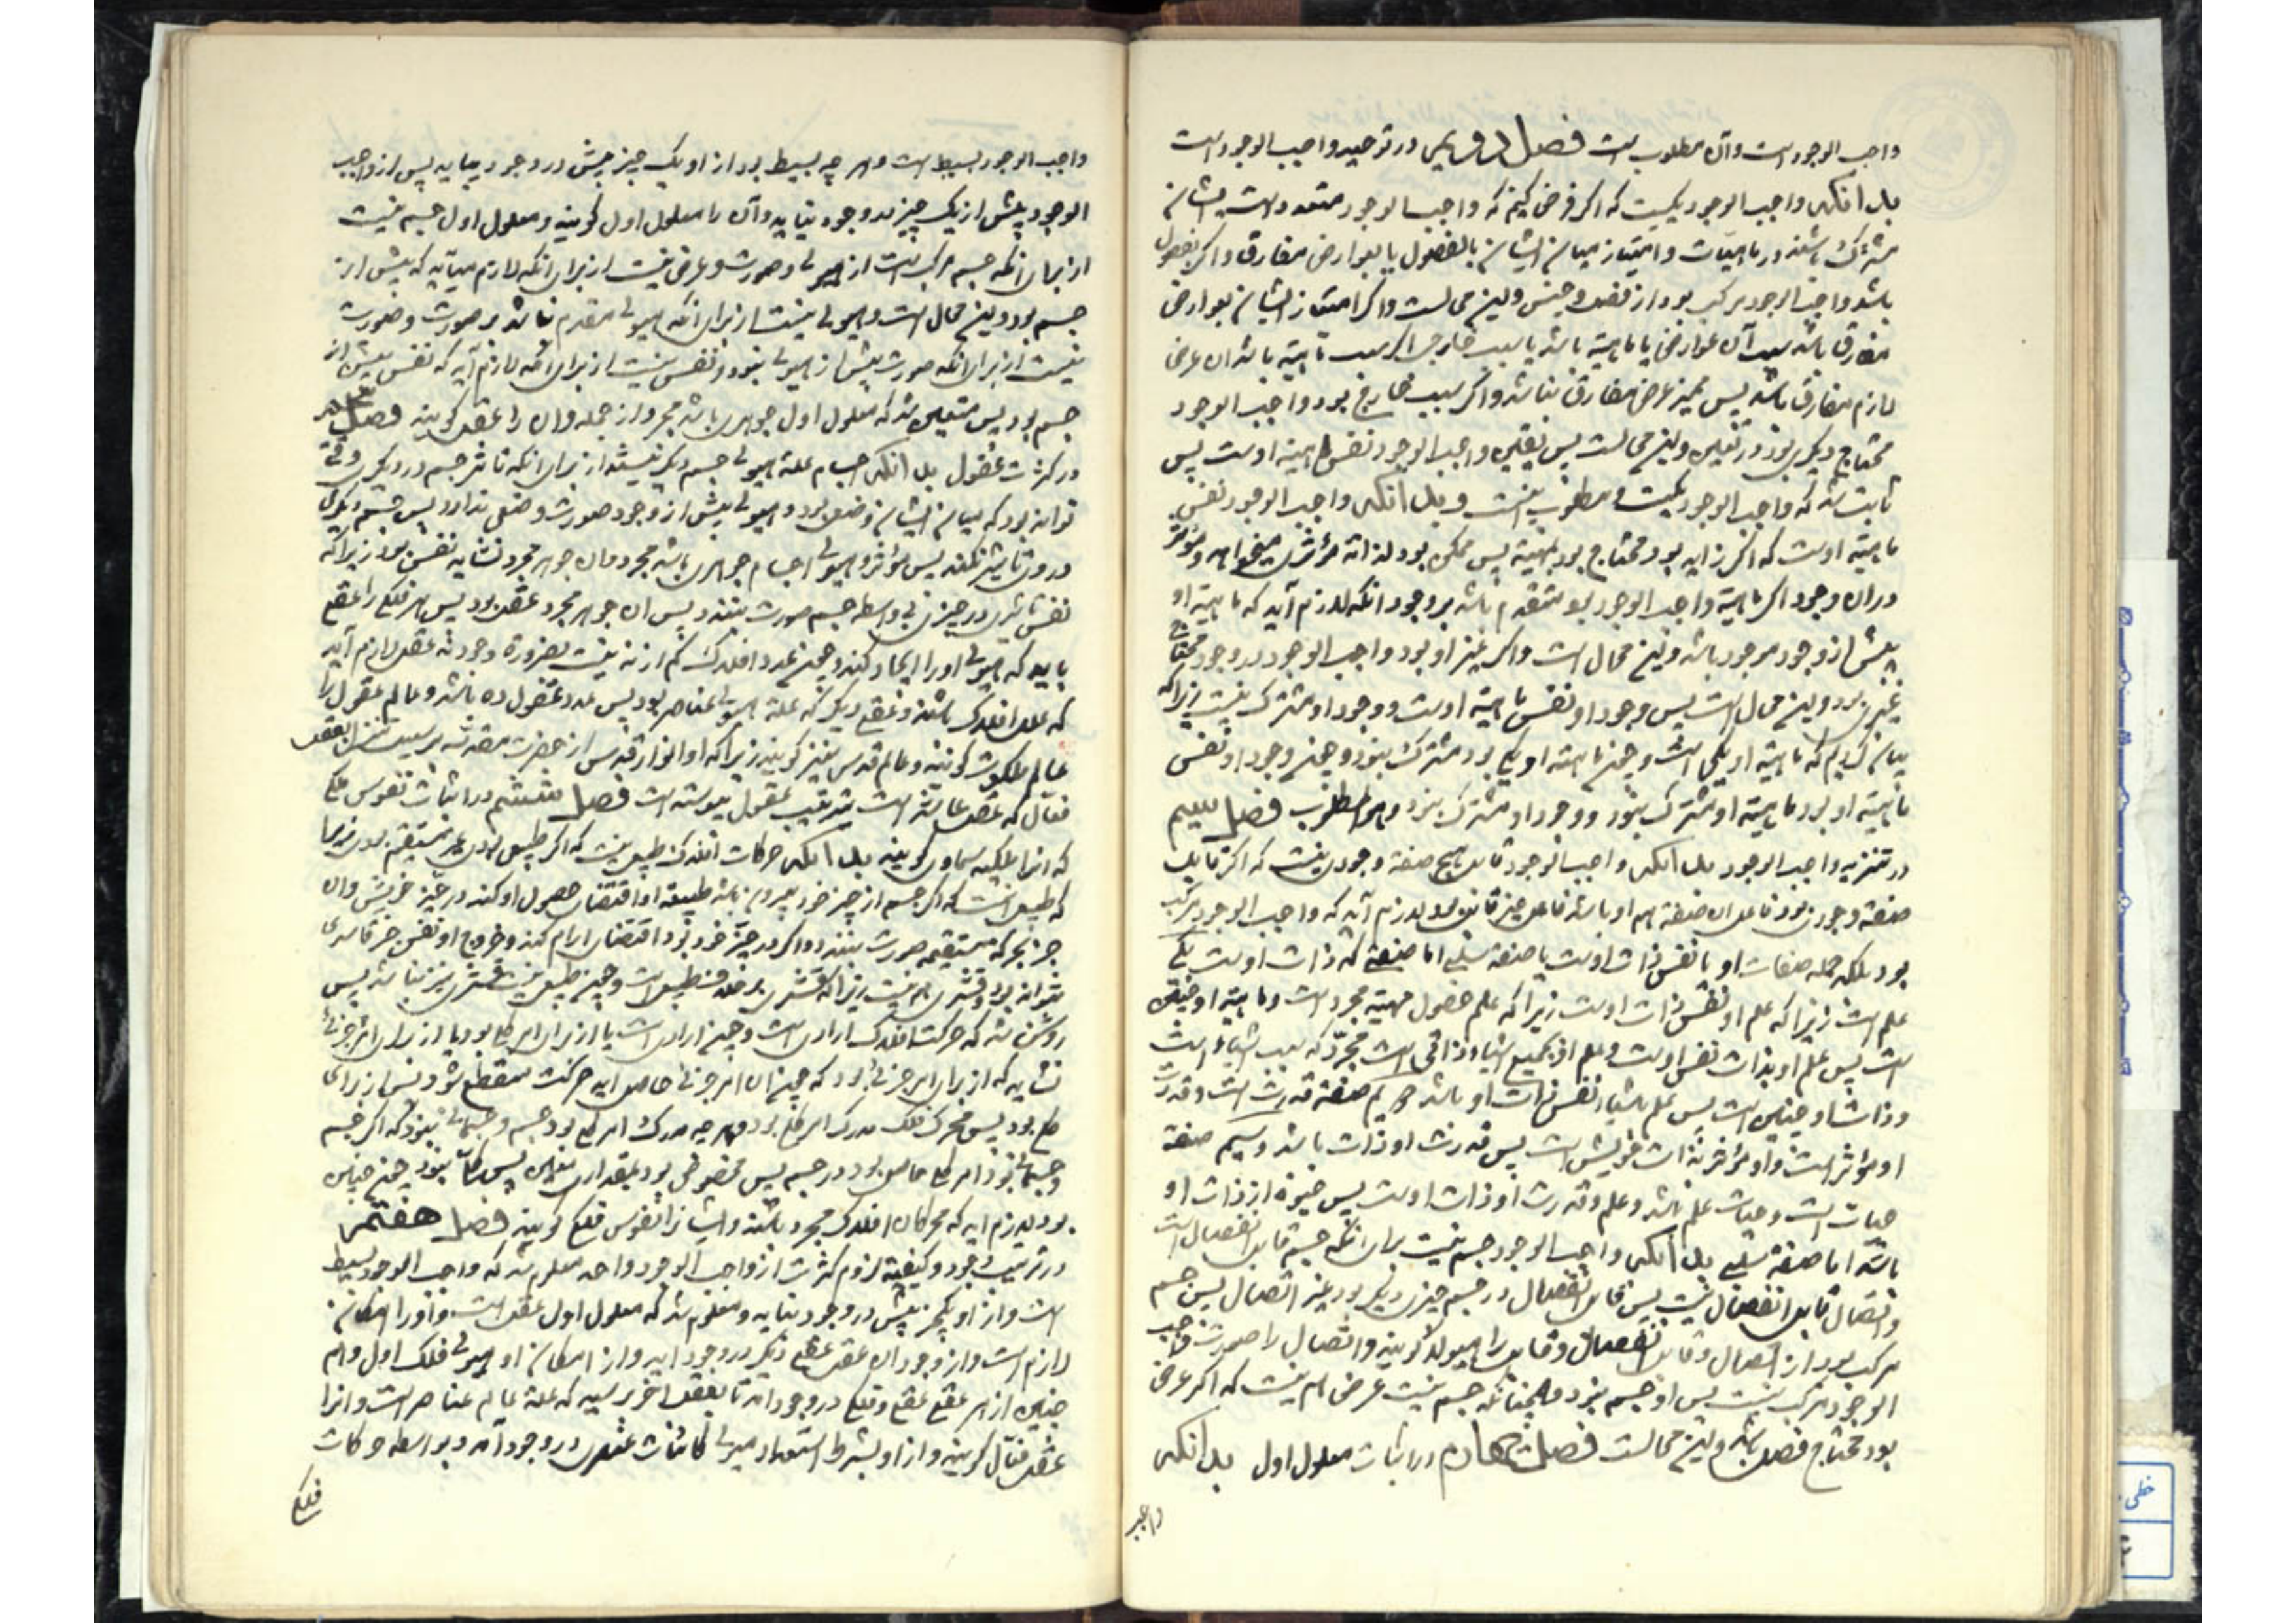 واجب الوجود است وآن مطلوب است فصل دویمی در توحید واجب الوجود است
بدانکه واجب الوجود یکیست که اگر فرض کنیم که واجب الوجود متعدد است ایشان
مشترک باشند در ماهیات وامتیاز میان ایشان بالفصول یا بعوارض مفارق واگر بفصول
باشد واجب الوجود مرکب بود از فصل وجنس واین محالست واگر امتیاز ایشان بعوارض
مفارق باشد سبب آن عوارض یا ماهیة باشد یا سبب خارجی اگر سبب ماهیة باشد ان عرض
لازم مفارق باشد پس ممیز عرض مفارق نباشد واگر سبب خارج بود واجب الوجود
محتاج دیگری بود در تعین واین محالست پس تعین واجب الوجود نفس ماهیة اوست پس
ثابت شد که واجب الوجود یکیست ومطلوب اینست وبدانکه واجب الوجود نفس
ماهیة اوست که اگر زاید بود محتاج بود بمهیة پس ممکن بود لذاته مؤثری میخواهد ومؤثر
در ان وجود اگر ماهیة واجب الوجود بود متقدم باشد بر وجود انکه لازم آید که ماهیة او
پیش از وجود موجود باشد واین محال است واگر غیر او بود واجب الوجود در وجود محتاج
غیری بود واین محال است پس وجود او نفس ماهیة اوست ووجود او مشترک نیست زیراکه
بیان کردیم که ماهیة او یکی است وچون ماهیة او یکی بود مشترک نبود وچون وجود او نفس
ماهیة او بود ماهیة او مشترک نبود ووجود او مشترک نبود وهو المطلوب فصل سیم
در تنزیه واجب الوجود بدانکه واجب الوجود قابل هیچ صفة وجودی نیست که اگر قابل
صفة وجودی بود فاعل ان صفة هم او باشد فاعل چیز قابل بود ولازم آید که واجب الوجود مرکب
بود بلکه جمله صفات او یا نفس ذات اوست یا صفة سلبی اما صفتی که ذات اوست یکی
علم است زیرا که علم او نفس ذات اوست زیرا که علم حضول مهیة مجرد است وماهیة او حقیقی
است پس علم او بذات نفس اوست وعلم او بجمیع اشیاء ذاتی است مجرد که سبب اشیاء است
وذات او چنین است پس علم باشیاء نفس ذات او باشد دویم صفة قدرت است وقدرت
او مؤثر است واو مؤثر بذات خویش است پس قدرت او ذات باشد وسیم صفة
حیات است وحیات علم باشد وعلم وقدرت او ذات اوست پس حیوة از ذات او
باشد اما صفة سلبی بدانکه واجب الوجود جسم نیست برای انکه جسم قابل انفصال است
واتصال قابل انفصال نیست پس قابل انفصال در جسم چیزی دیگر بود غیر اتصال پس جسم
مرکب بود از اتصال وقابل انفصال وقابل را هیولا گویند واتصال را صورت وواجب
الوجود مرکب نیست پس او جسم نبود وهمچنانکه جسم نیست عرض هم نیست که اگر عرض
بود محتاج فصل باشد واین محالست فصل چهارم در اثبات معلول اول بدانکه
واجب
واجب الوجود بسیط است وهر چه بسیط بود از او یک چیز بیش در وجود نیاید پس از واجب
الوجود بیش از یک چیز در وجود نیاید وآن را معلول اول گویند ومعلول اول جسم نیست
از برای انکه جسم مرکب است از هیولی وصورت وعرض نیست از برای انکه لازم میآید که پیش از
جسم بود واین محال است وهیولی نیست از برای انکه هیولی مقدم نباشد بر صورت وصورت
نیست از برای انکه صورت پیش از هیولی نبود ونفس نیست از برای انکه لازم آید که نفس پیش از
جسم بود پس متعین شد که معلول اول جوهری باشد مجرد از جمله وان را عقل گویند فصل پنجم
در کثرت عقول بدانکه اجسام علة هیولی جسم دیگر نیستند از برای انکه تاثیر جسم در دیگری وقتی
تواند بود که میان ایشان وضعی بود وهیولی پیش از وجود صورت وضعی ندارد پس جسم دیگری
در وی تاثیر نکند پس مؤثر در هیولی اجسام جوهری باشد مجرد وان جوهر مجرد نشاید نفس بود زیراکه
نفس تاثیری در چیزی بی واسطه جسم صورت نبندد پس ان جوهر مجرد عقل بود پس هر فلکی را عقلی
باید که هیولی او را ایجاد کند وچون عدد افلاک کم از نه نیست بضرورة وجود نه عقل لازم آید
که علل افلاک باشند وعقلی دیگر که علة هیولی عناصر بود پس عدد عقول ده باشد وعالم عقول را
عالم ملکوت گویند وعالم قدس نیز گویند زیراکه او انوار قدس از حضرت مقدسه بر سبیل تنزل بعقل
فعال که عقل عاشر است بترتیب عقول پیوسته است فصل ششم در اثبات نفوس فلکی
که انرا ملکیه سماوی گویند بدانکه حرکات افلاک طبیعی نیست که اگر طبیعی بودی غیر مستقیم بودی زیرا
که طبیعی انست که اگر جسم از چیز خود بیرون باشد طبیعة او اقتضای حصول او کند در حیز خویش وان
جز بحرکة مستقیمه صورت نبندد واگر در حیز خود بود اقتضای ارام کند وخروج او بنفس جز قاسری
نتواند بود وقسری هم نیست زیراکه قسری بر خلاف طبیعی است وچون طبیعی نیست قسری نیز نباشد پس
روشن شد که حرکت افلاک ارادی است وچون ارادی است یا از برای امر کلی بود یا از برای امر جزئی
نشاید که از برای امر جزئی بود که چون ان امر جزئی حاصل اید حرکت منقطع شود پس از برای
کلی بود پس محرک فلک مدرک امر کلی بود وهر چه مدرک امر کلی بود جسم وجسمانی نبود که اگر جسم
وجسمانی بود امر کلی حاصل بود در جسم پس مخصوص بود بمقداری معین پس کلی نبود چون چنین
بود لازم اید که محرکان افلاک مجرد باشند وایشانرا نفوس فلکی گویند فصل هفتم
در ترتیب وجود وکیفیة لزوم کثرت از واجب الوجود واحد معلوم شد که واجب الوجود بسیط
است واز او یکچیز بیش در وجود نیاید ومعلوم شد که معلول اول عقل است واورا امکان
لازم است واز وجود ان عقل عقلی دیگر در وجود اید واز امکان او هیولی فلک اول وهم
چنین از هر عقلی عقلی وفلکی در وجود آید تا بعقل اخر رسید که علة عالم عناصر است وانرا
عقل فعال گویند واز او بشرط استعداد هیولی کائنات عنصری در وجود آمد وبواسطه حرکات
فلکی
خطی